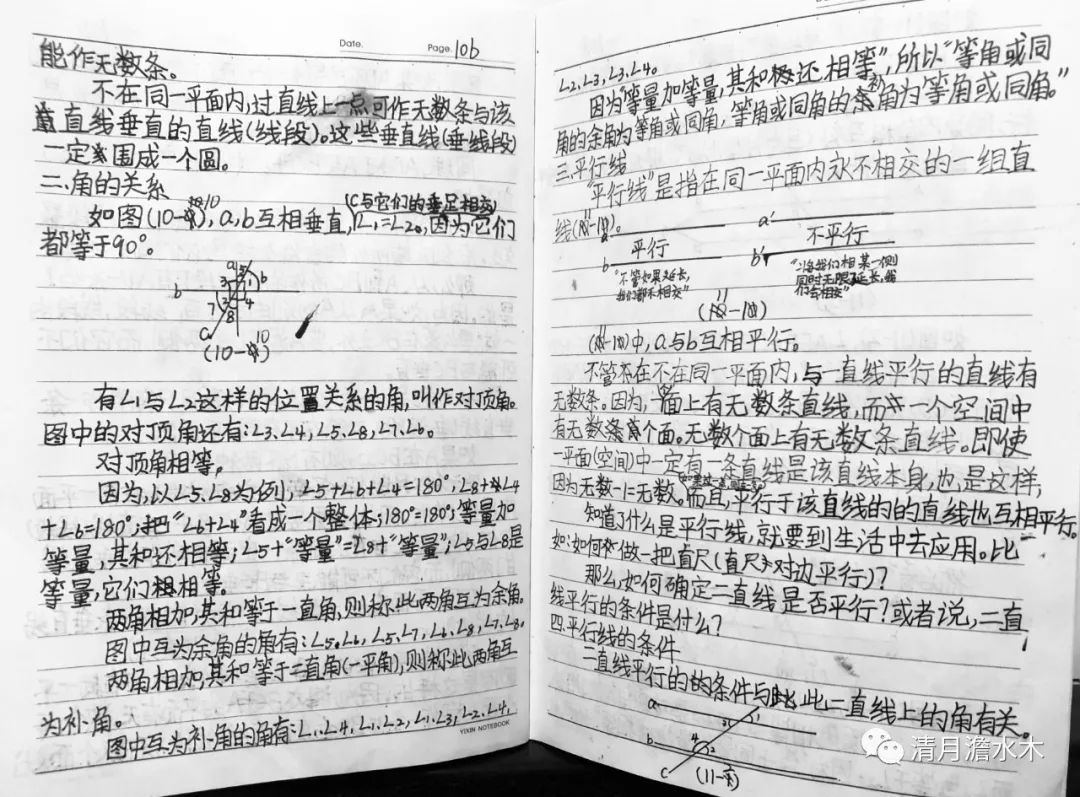 Date.
Page. 10b
能作无数条。
不在同一平面内,过直线上一点可作无数条与该
直线垂直的直线(线段)。这些垂直线(垂线段)
一定围成一个圆。
二.角的关系
如图(10-10),a,b互相垂直,(C与它们的垂足相交)
∠1=∠2。因为它们
都等于90°。
a
b
b
3
1
4
7
8
C
(10-10)
有∠1与∠2这样的位置关系的角,叫作对顶角。
图中的对顶角还有:∠3、∠4,∠5、∠8,∠7、∠6。
对顶角相等。
因为,以∠5、∠8为例,∠5+∠6+∠4=180°,∠8+∠4
+∠6=180°;把“∠6+∠4”看成一个整体;180°=180°;等量加
等量,其和还相等;∠5+“等量”=∠8+“等量”;∠5与∠8是
等量,它们相等。
两角相加,其和等于一直角,则称此两角互为余角。
图中互为余角的角有:∠5、∠6,∠5、∠7,∠6、∠8,∠7、∠8。
两角相加,其和等于二直角(一平角),则称此两角互
为补角。
图中互为补角的角有:∠1、∠4,∠1、∠2,∠1、∠3,∠2、∠4,
YIXIN NOTEBOOK
∠2、∠3,∠3、∠4。
因为“等量加等量,其和还相等”,所以“等角或同
角的余角为等角或同角,等角或同角的补角为等角或同角。”
三.平行线
“平行线”是指在同一平面内永不相交的一组直
线(11-11)。
a'
平行
不平行
b
b'
“不管如果延长,
我们都不相交”
“将我们相某一侧
同时无限延长,我
们会相交”
(11-11)
(11-11)中,a与b互相平行。
不管在不在同一平面内,与一直线平行的直线有
无数条。因为,一面上有无数条直线,而一个空间中
有无数个面。无数个面上有无数条直线。即使
一平面(空间)中一定有一条直线是该直线本身,也是这样,
因为无数-1=无数。而且,平行于该直线的的直线也互相平行。
知道了什么是平行线,就要到生活中去应用。比
如:如何做一把直尺(直尺对边平行)?
那么,如何确定二直线是否平行?或者说,二直
线平行的条件是什么?
四.平行线的条件
二直线平行的的条件与此二直线上的角有关。
a
1
3
b
4
2
C
清月澹水木